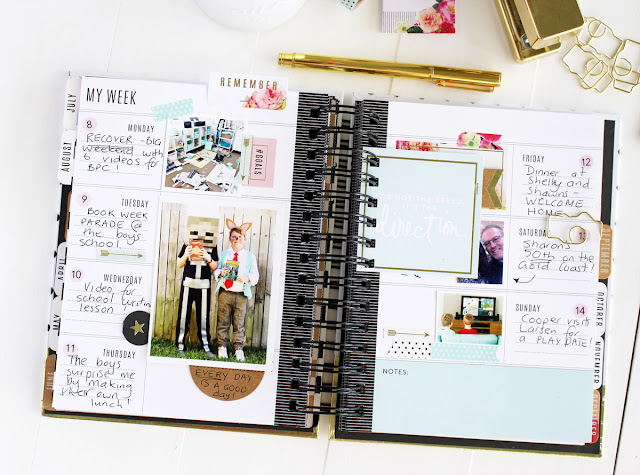 REMEMBER
MY WEEK
JULY
AUGUST
APRIL
MAY
JUNE
8 MONDAY
RECOVER - BIG
weekend with
6 videos for
BPC!
#GOALS
9 TUESDAY
BOOK WEEK
PARADE @
the boys
school.
10 WEDNESDAY
Video for
school
lesson!
11 THURSDAY
The boys
surprise me
by making
their own
lunch!
EVERY DAY
IS A GOOD
day!
IT'S NOT THE SPEED
IT'S THE
direction
FRIDAY 12
Dinner at
Shelly and
Shawns -
WELCOME
HOME
SATURDAY
Sharons
50th on the
Gold Coast!
SUNDAY 14
Cooper visits
Larsen for
a PLAY DATE!
NOTES:
SEPTEMBER
OCTOBER
NOVEMBER